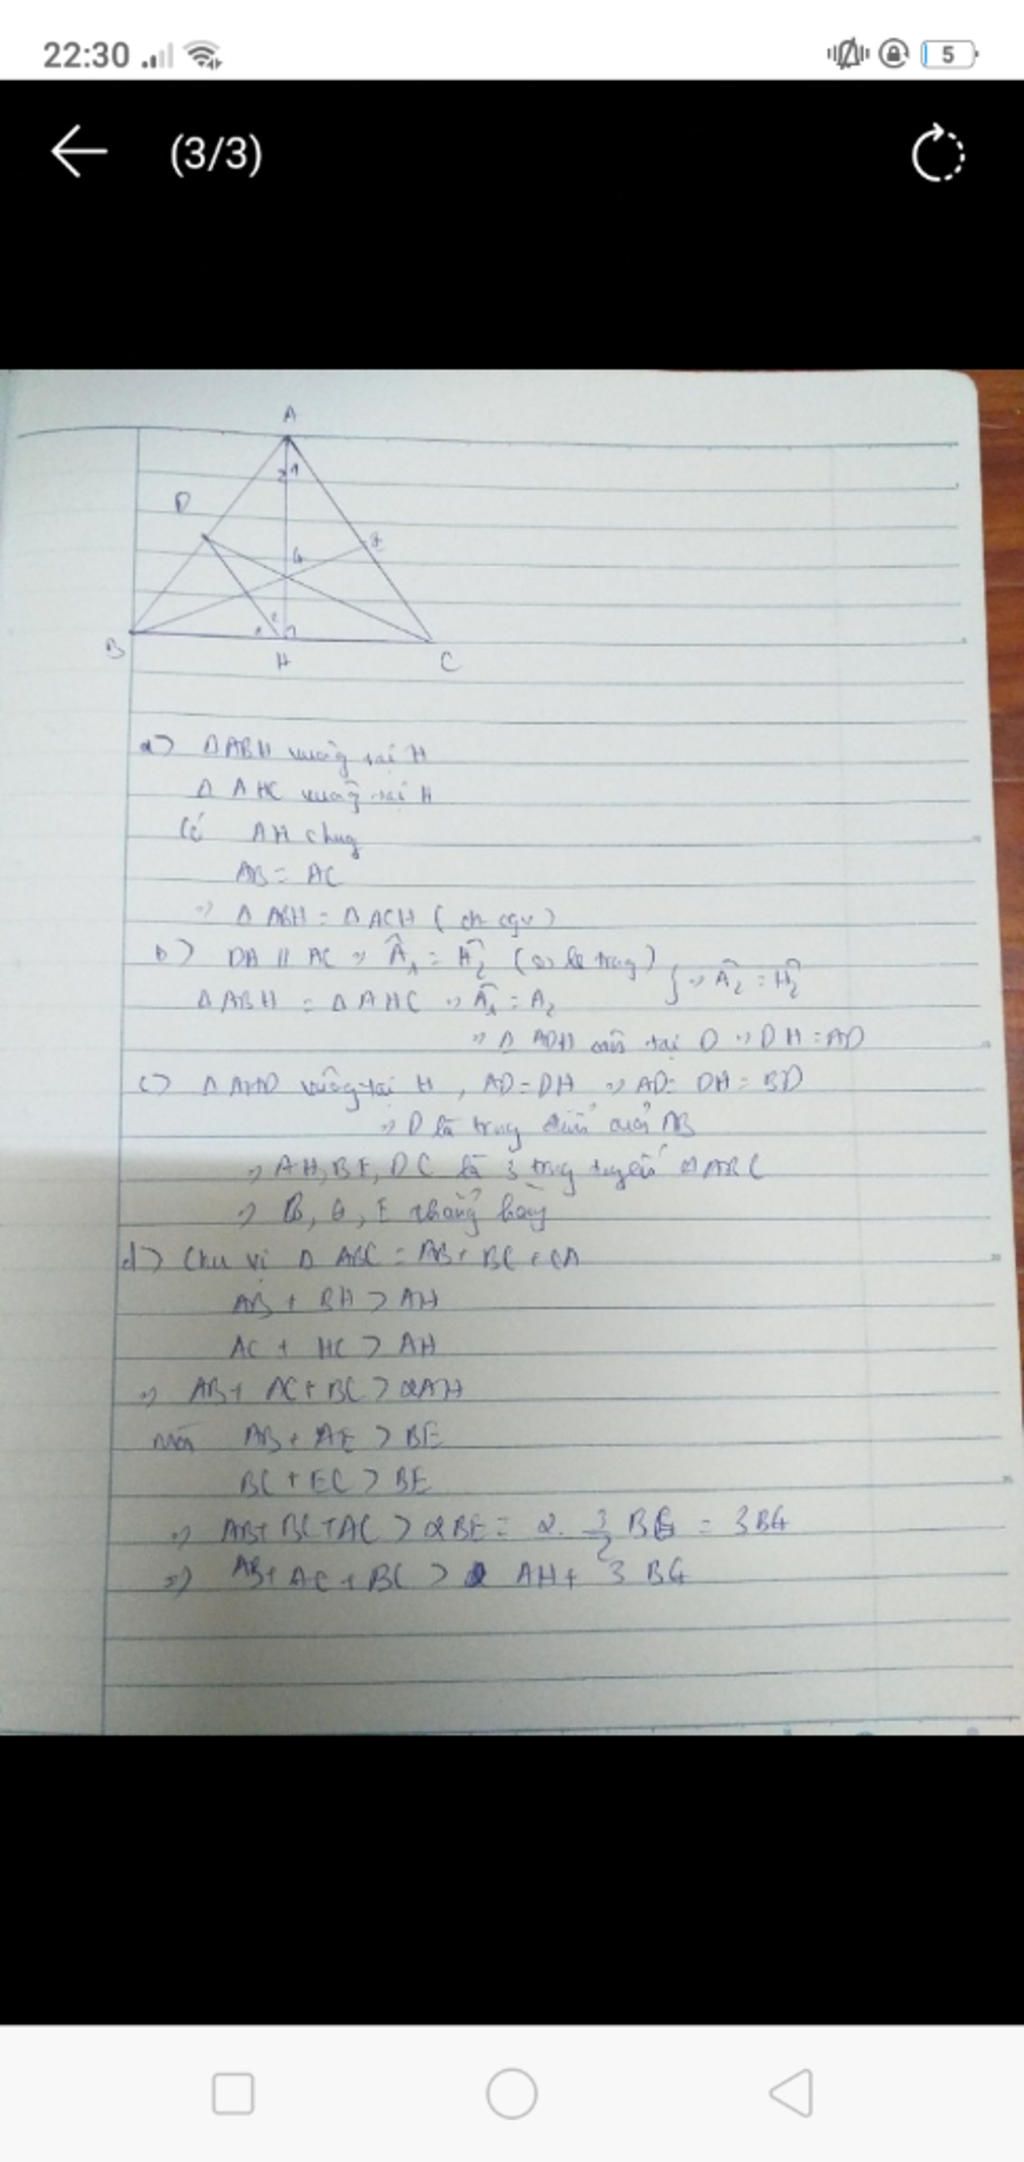 22:30
5
(3/3)
A
2 1
D
E
G
2
1
B
H
C
a) Δ ABH vuông tại H
Δ AHC vuông tại H
Có AH chung
AB = AC
=> Δ ABH = Δ ACH (ch cgv)
b) DH // AC => Â1 = Ĥ2 (so le trong)
Δ ABH = Δ AHC => Â1 = A2 } => Â2 = Ĥ2
=> Δ ADH cân tại D => DH = AD
c) Δ AHD vuông tại H, AD = DH => AD = DH = BD
=> D là trung điểm của AB
=> AH, BE, DC là 3 trung tuyến Δ ABC
=> B, G, E thẳng hàng
d) Chu vi Δ ABC = AB + BC + CA
AB + BH > AH
AC + HC > AH
=> AB + AC + BC > 2AH
AB + AE > BE
BC + EC > BE
=> AB + BC + AC > 2BE = 2. 3/2 BG = 3BG
=> AB + AC + BC > AH + 3 BG